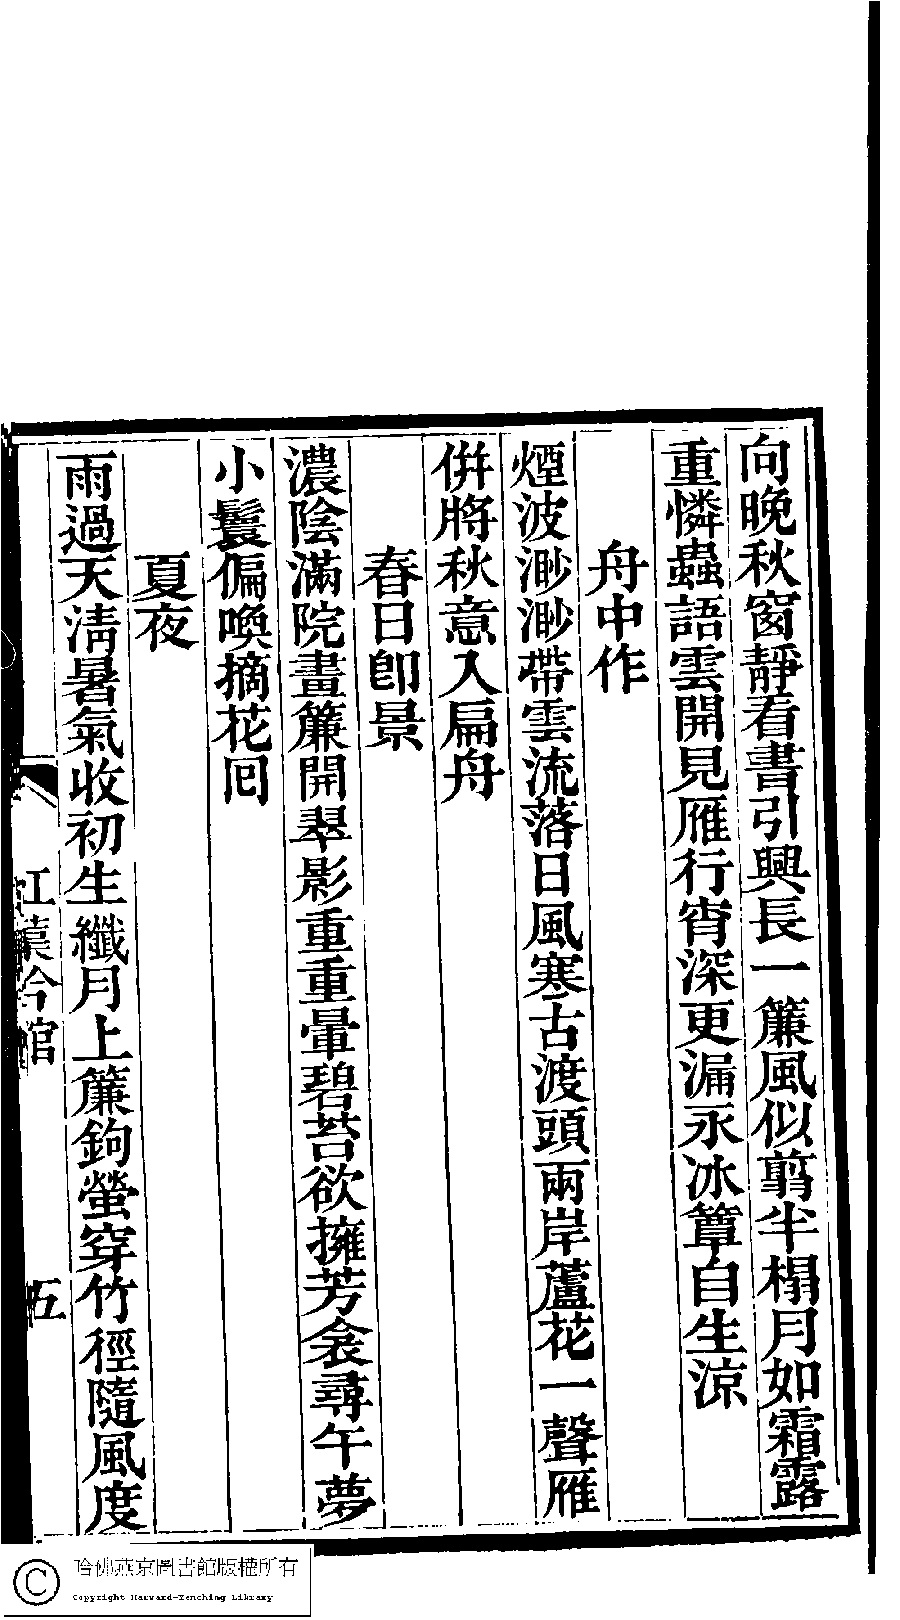 向晚秋窗靜看書引興長一簾風似翦半榻月如霜露
重憐蟲語雲開見雁行宵深更漏永冰簟自生涼
舟中作
煙波渺渺帶雲流落日風寒古渡頭兩岸蘆花一聲雁
併將秋意入扁舟
春日卽景
濃陰滿院畫簾開翠影重重暈碧苔欲擁芳衾尋午夢
小鬟偏喚摘花囘
夏夜
雨過天淸暑氣收初生纖月上簾鉤螢穿竹徑隨風度
紅蕉吟館
五
哈佛燕京圖書館版權所有
Copyright Harvard-Yenching Library